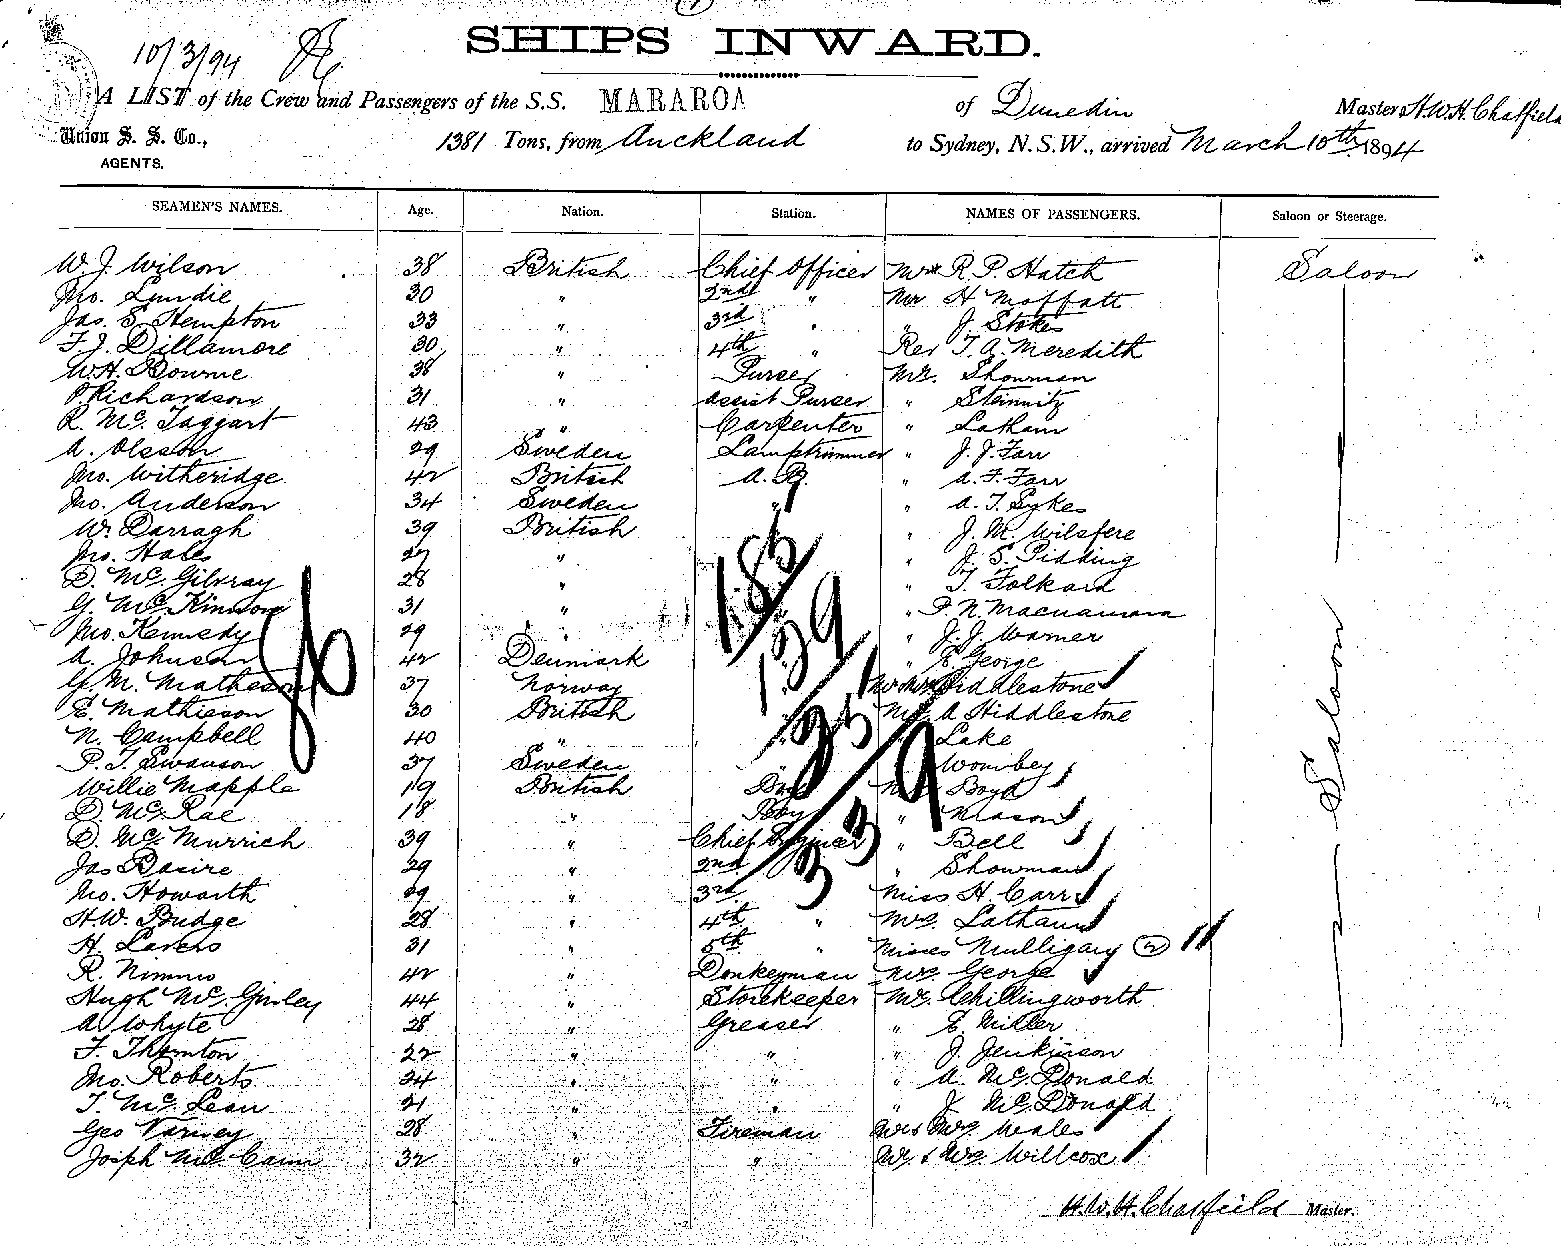 10/3/94
SHIPS INWARD.
A LIST of the Crew and Passengers of the S.S. MARAROA of Dunedin Master H.W.H. Chatfield
Union S. S. Co., 1381 Tons, from Auckland to Sydney, N.S.W., arrived March 10th 1894
AGENTS.
SEAMEN'S NAMES. Age. Nation. Station. NAMES OF PASSENGERS. Saloon or Steerage.
W. J. Wilson 38 British Chief Officer R. P. Hatch Saloon
Jno. Lundie 30 " 2nd " Mr H Moffatt
Jas. S. Hempton 33 " 3rd " " J. Stokes
F. J. Dillamore 30 " 4th " Rev T. A. Meredith
W. H. Bourne 38 " Purser Mr. Showman
P. Richardson 31 " Assist Purser " Steinnitz
R. Mc. Taggart 43 " Carpenter " Latham
A. Olsson 29 Sweden Lamptrimmer " J. J. Farr
Jno. Witheridge 42 British A. B. " A. F. Farr
Jno. Anderson 34 Sweden " " A. T. Sykes
W. Darragh 39 British " J. M. Wilsfere
Jno. Hales 27 " " J. S. Pidding
D. Mc. Gilvray 28 " " T. Folkard
G. Mc. Kinnon 31 " " P. N. Macnamara
Jno. Kennedy 29 " " J. J. Warner
A. Johnson 42 Denmark " E. George
G. M. Matheson 37 Norway Hiddlestone
E. Mathieson 30 British A Hiddlestone
N. Campbell 40 " Lake
P. T. Swanson 37 Sweden " Wombey
Willie Mapple 19 British Boy Boyd
D. Mc. Rae 18 " Boy " Mason
D. Mc. Murrich 39 " Chief Engineer " Bell
Jas Basire 29 " 2nd " Showman
Jno. Howarth 29 " 3rd Miss H. Carr
H. W. Budge 28 " 4th " Mrs. Latham
H. Lavers 31 " 5th " Misses Mulligary (2)
R. Nimmo 42 " Donkeyman Mrs George
Hugh Mc. Ginley 44 " Storekeeper Mr. Chillingworth
A. Whyte 28 " Greaser " E. Miller
F. Thornton 22 " " " J. Jenkinson
Jno. Roberts 24 " " " A. Mc. Donald
T. Mc. Lean 21 " " " J. Mc. Donald
Geo Varney 28 " Fireman Mr & Mrs Wales
Joseph Mc. Cann 32 " " Mr & Mrs Willcox
Saloon
185
139
351
339
H.W.H. Chatfield Master.